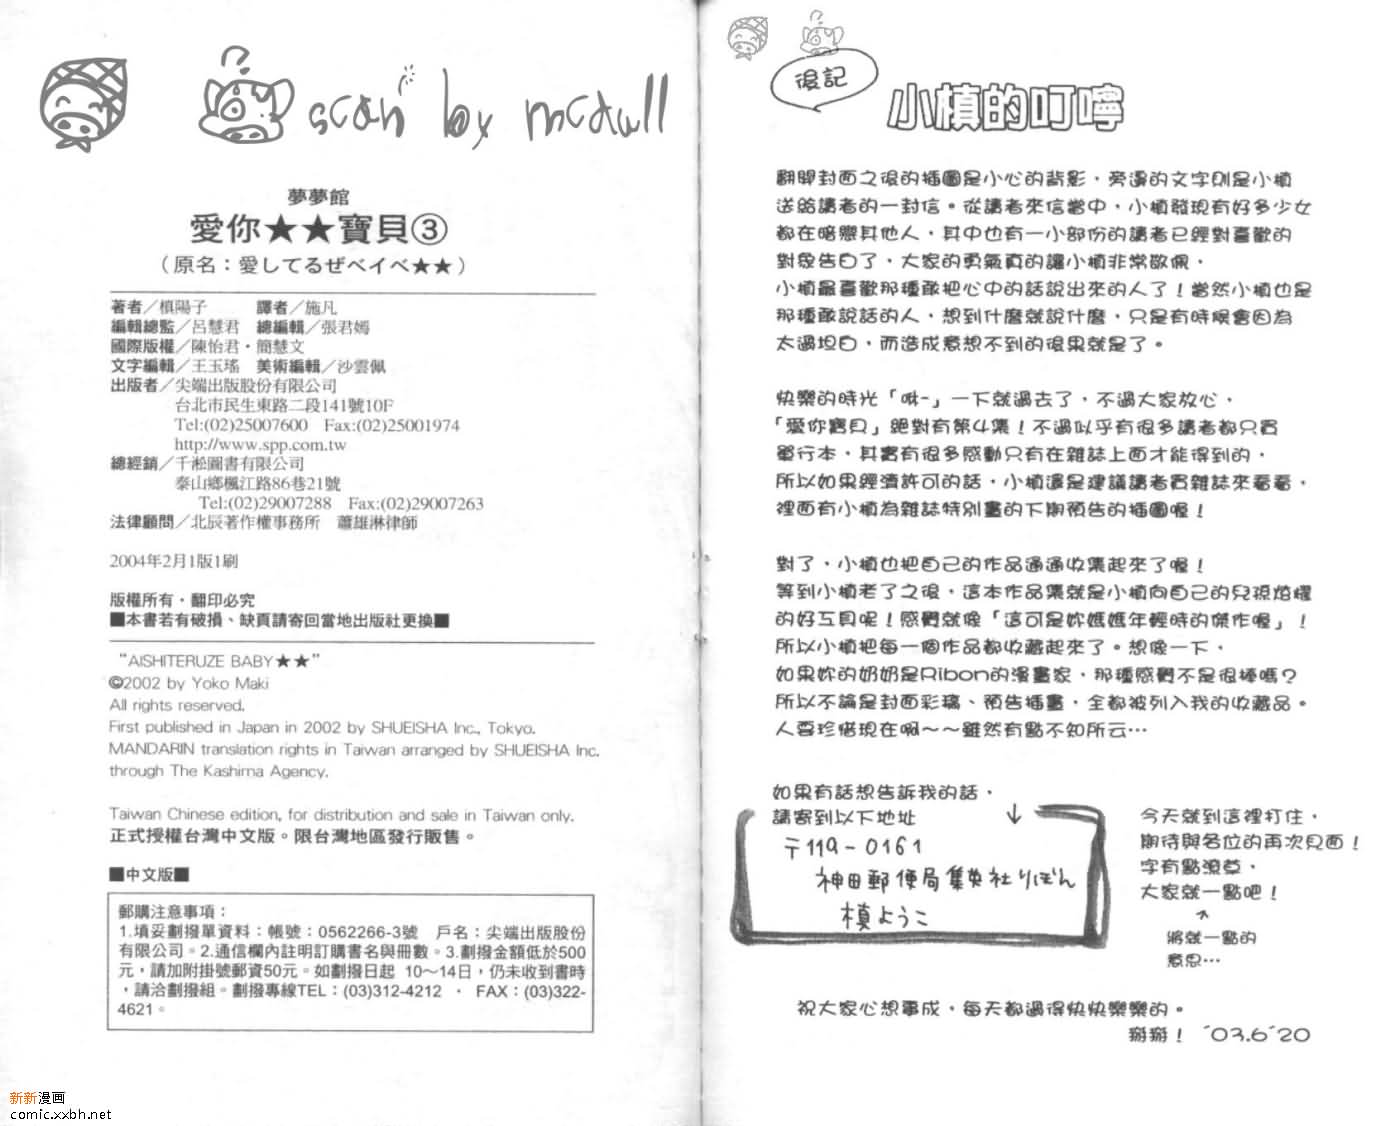 scan by mcdull
夢夢館
愛你★★寶貝③
（原名：愛してるぜベイベ★★）
著者／槙陽子　譯者／施凡
編輯總監／呂慧君　總編輯／張君嫣
國際版權／陳怡君・簡慧文
文字編輯／王玉瑤　美術編輯／沙雲佩
出版者／尖端出版股份有限公司
台北市民生東路二段141號10F
Tel:(02)25007600　Fax:(02)25001974
http://www.spp.com.tw
總經銷／千淞圖書有限公司
泰山鄉楓江路86巷21號
Tel:(02)29007288　Fax:(02)29007263
法律顧問／北辰著作權事務所　蕭雄淋律師
2004年2月1版1刷
版權所有・翻印必究
■本書若有破損、缺頁請寄回當地出版社更換■
“AISHITERUZE BABY★★”
©2002 by Yoko Maki
All rights reserved.
First published in Japan in 2002 by SHUEISHA Inc., Tokyo.
MANDARIN translation rights in Taiwan arranged by SHUEISHA Inc.
through The Kashima Agency.
Taiwan Chinese edition, for distribution and sale in Taiwan only.
正式授權台灣中文版。限台灣地區發行販售。
■中文版■
郵購注意事項：
1.填妥劃撥單資料：帳號：0562266-3號　戶名：尖端出版股份
有限公司。2.通信欄內註明訂購書名與冊數。3.劃撥金額低於500
元，請加附掛號郵資50元。如劃撥日起 10～14日，仍未收到書時
，請洽劃撥組。劃撥專線TEL：(03)312-4212 ・ FAX：(03)322-
4621。
新新漫画
comic.xxbh.net
後記
小槙的叮嚀
翻開封面之後的插圖是小心的背影，旁邊的文字則是小槙
送給讀者的一封信。從讀者來信當中，小槙發現有好多少女
都在暗戀其他人，其中也有一小部份的讀者已經對喜歡的
對象告白了，大家的勇氣真的讓小槙非常敬佩，
小槙最喜歡那種敢把心中的話說出來的人了！當然小槙也是
那種敢說話的人，想到什麼就說什麼，只是有時候會因為
太過坦白，而造成意想不到的後果就是了。
快樂的時光「咻-」一下就過去了，不過大家放心，
「愛你寶貝」絕對有第4集！不過似乎有很多讀者都只買
單行本，其實有很多感動只有在雜誌上面才能得到的，
所以如果經濟許可的話，小槙還是建議讀者買雜誌來看看，
裡面有小槙為雜誌特別畫的下期預告的插圖喔！
對了，小槙也把自己的作品通通收集起來了喔！
等到小槙老了之後，這本作品集就是小槙向自己的兒孫炫耀
的好工具呢！感覺就像「這可是妳媽媽年輕時的傑作喔」！
所以小槙把每一個作品都收藏起來了。想像一下，
如果妳的奶奶是Ribon的漫畫家，那種感覺不是很棒嗎？
所以不論是封面彩稿、預告插畫，全都被列入我的收藏品。
人要珍惜現在啊～～雖然有點不知所云…
如果有話想告訴我的話，
請寄到以下地址 ↓
〒119-0161
神田郵便局集英社りぼん
槙ようこ
今天就到這裡打住，
期待與各位的再次見面！
字有點潦草，
大家就一點吧！
↑
將就一點的
意思…
祝大家心想事成，每天都過得快快樂樂的。
掰掰！ ’03.6’20